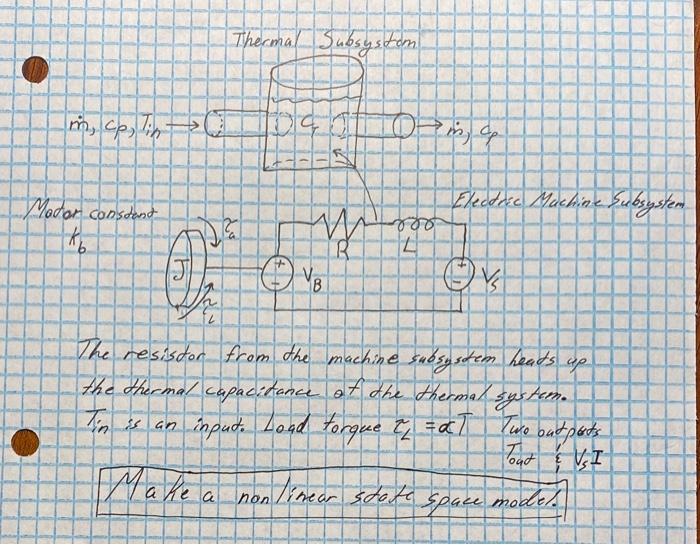 Thermal Subsystem
ṁ, cp, Tin → C_T → ṁ, cp
Electric Machine Subsystem
Motor constant
k_b
τ_a
R
L
J
+
-
V_B
+
-
V_s
τ_L
The resistor from the machine subsystem heats up
the thermal capacitance of the thermal system.
Tin is an input. Load torque τ_L = αT Two outputs
Tout & V_sI
Make a nonlinear state space model.